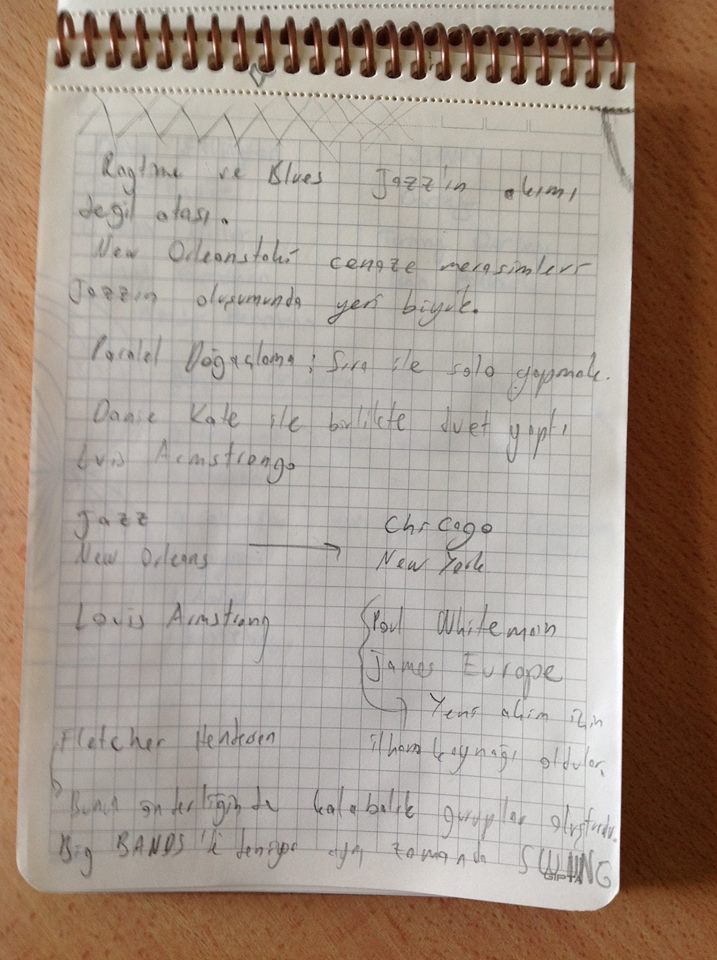 Ragtime ve Blues Jazz'ın akımı
değil atası.
New Orleanstaki cenaze merasimleri
Jazzın oluşumunda yeri büyük.
Paralel Doğaçlama; Sıra ile solo yapmak.
Danie Kate ile birlikte duet yaptı
Luis Armstrong.
Jazz
New Orleans → Chicago
New York
Louis Armstrong
Poul Whitemain
James Europe
→ Yeni akım için
ilham kaynağı oldular.
Fletcher Henderen
Bunun önderliğinde kalabalık guruplar oluşturdu.
Big BANDS 'te deniyor aynı zamanda SWING
GIPTA